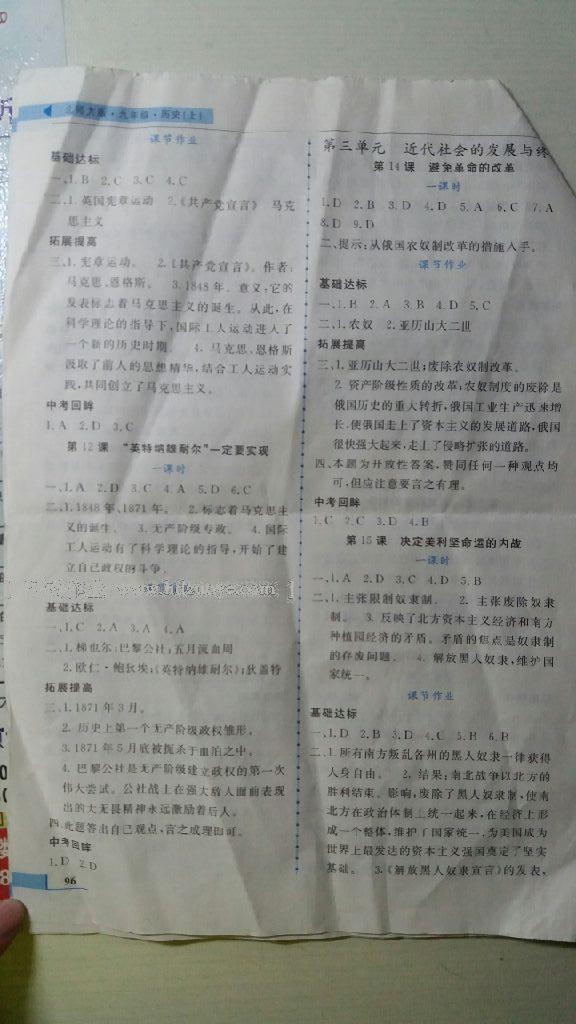 北师大版·九年级·历史(上)
课节作业
基础达标
一、1.B 2.C 3.C 4.C
二、1.英国宪章运动 2.《共产党宣言》 马克
思主义
拓展提高
三、1.宪章运动。 2.《共产党宣言》。作者:
马克思、恩格斯。 3.1848年。意义:它的
发表标志着马克思主义的诞生。从此,在
科学理论的指导下,国际工人运动进入了
一个新的历史时期。 4.马克思、恩格斯
汲取了前人的思想精华,结合工人运动实
践,共同创立了马克思主义。
中考回眸
1.A 2.D 3.C
第12课 “英特纳雄耐尔”一定要实现
一课时
一、1.A 2.D 3.C 4.A 5.D 6.C
二、1.1848年、1871年。 2.标志着马克思主
义的诞生。 3.无产阶级专政。 4.国际
工人运动有了科学理论的指导,开始了建
立自己政权的斗争。
基础达标
一、1.C 2.A 3.A 4.A
二、1.梯也尔;巴黎公社;五月流血周
2.欧仁·鲍狄埃;《英特纳雄耐尔》;狄盖特
拓展提高
三、1.1871年3月。
2.历史上第一个无产阶级政权雏形。
3.1871年5月底被扼杀于血泊之中。
4.巴黎公社是无产阶级建立政权的第一次
伟大尝试。公社战士在强大敌人面前表现
出的大无畏精神永远激励着后人。
四、此题答出自己观点,言之成理即可。
中考回眸
1.D 2.D
96
第三单元 近代社会的发展与终
第14课 避免革命的改革
一课时
1.D 2.B 3.D 4.D 5.A 6.C 7.A
8.D 9.D
二、提示:从俄国农奴制改革的措施入手。
课节作业
基础达标
一、1.B 2.A 3.B 4.D 5.C
二、1.农奴 2.亚历山大二世
拓展提高
三、1.亚历山大二世;废除农奴制改革。
2.资产阶级性质的改革;农奴制度的废除是
俄国历史的重大转折,俄国工业生产迅速增
长,使俄国走上了资本主义的发展道路,俄国
很快强大起来,走上了侵略扩张的道路。
四、本题为开放性答案,赞同任何一种观点均
可,但应注意要言之有理。
中考回眸
1.C 2.C 3.D 4.B
第15课 决定美利坚命运的内战
一课时
一、1.A 2.D 3.C 4.D 5.B
二、1.主张限制奴隶制。 2.主张废除奴隶
制。 3.反映了北方资本主义经济和南方
种植园经济的矛盾。矛盾的焦点是奴隶制
的存废问题。 4.解放黑人奴隶,维护国
家统一。
课节作业
基础达标
一、1.D 2.B 3.D 4.C 5.B 6.B
二、1.所有南方叛乱各州的黑人奴隶一律获得
人身自由。 2.结果:南北战争以北方的
胜利结束。影响:废除了黑人奴隶制,使南
北方在政治体制上统一起来,在经济上形
成一个整体,维护了国家统一,为美国成为
世界上最发达的资本主义强国奠定了坚实
基础。 3.《解放黑人奴隶宣言》的发表、